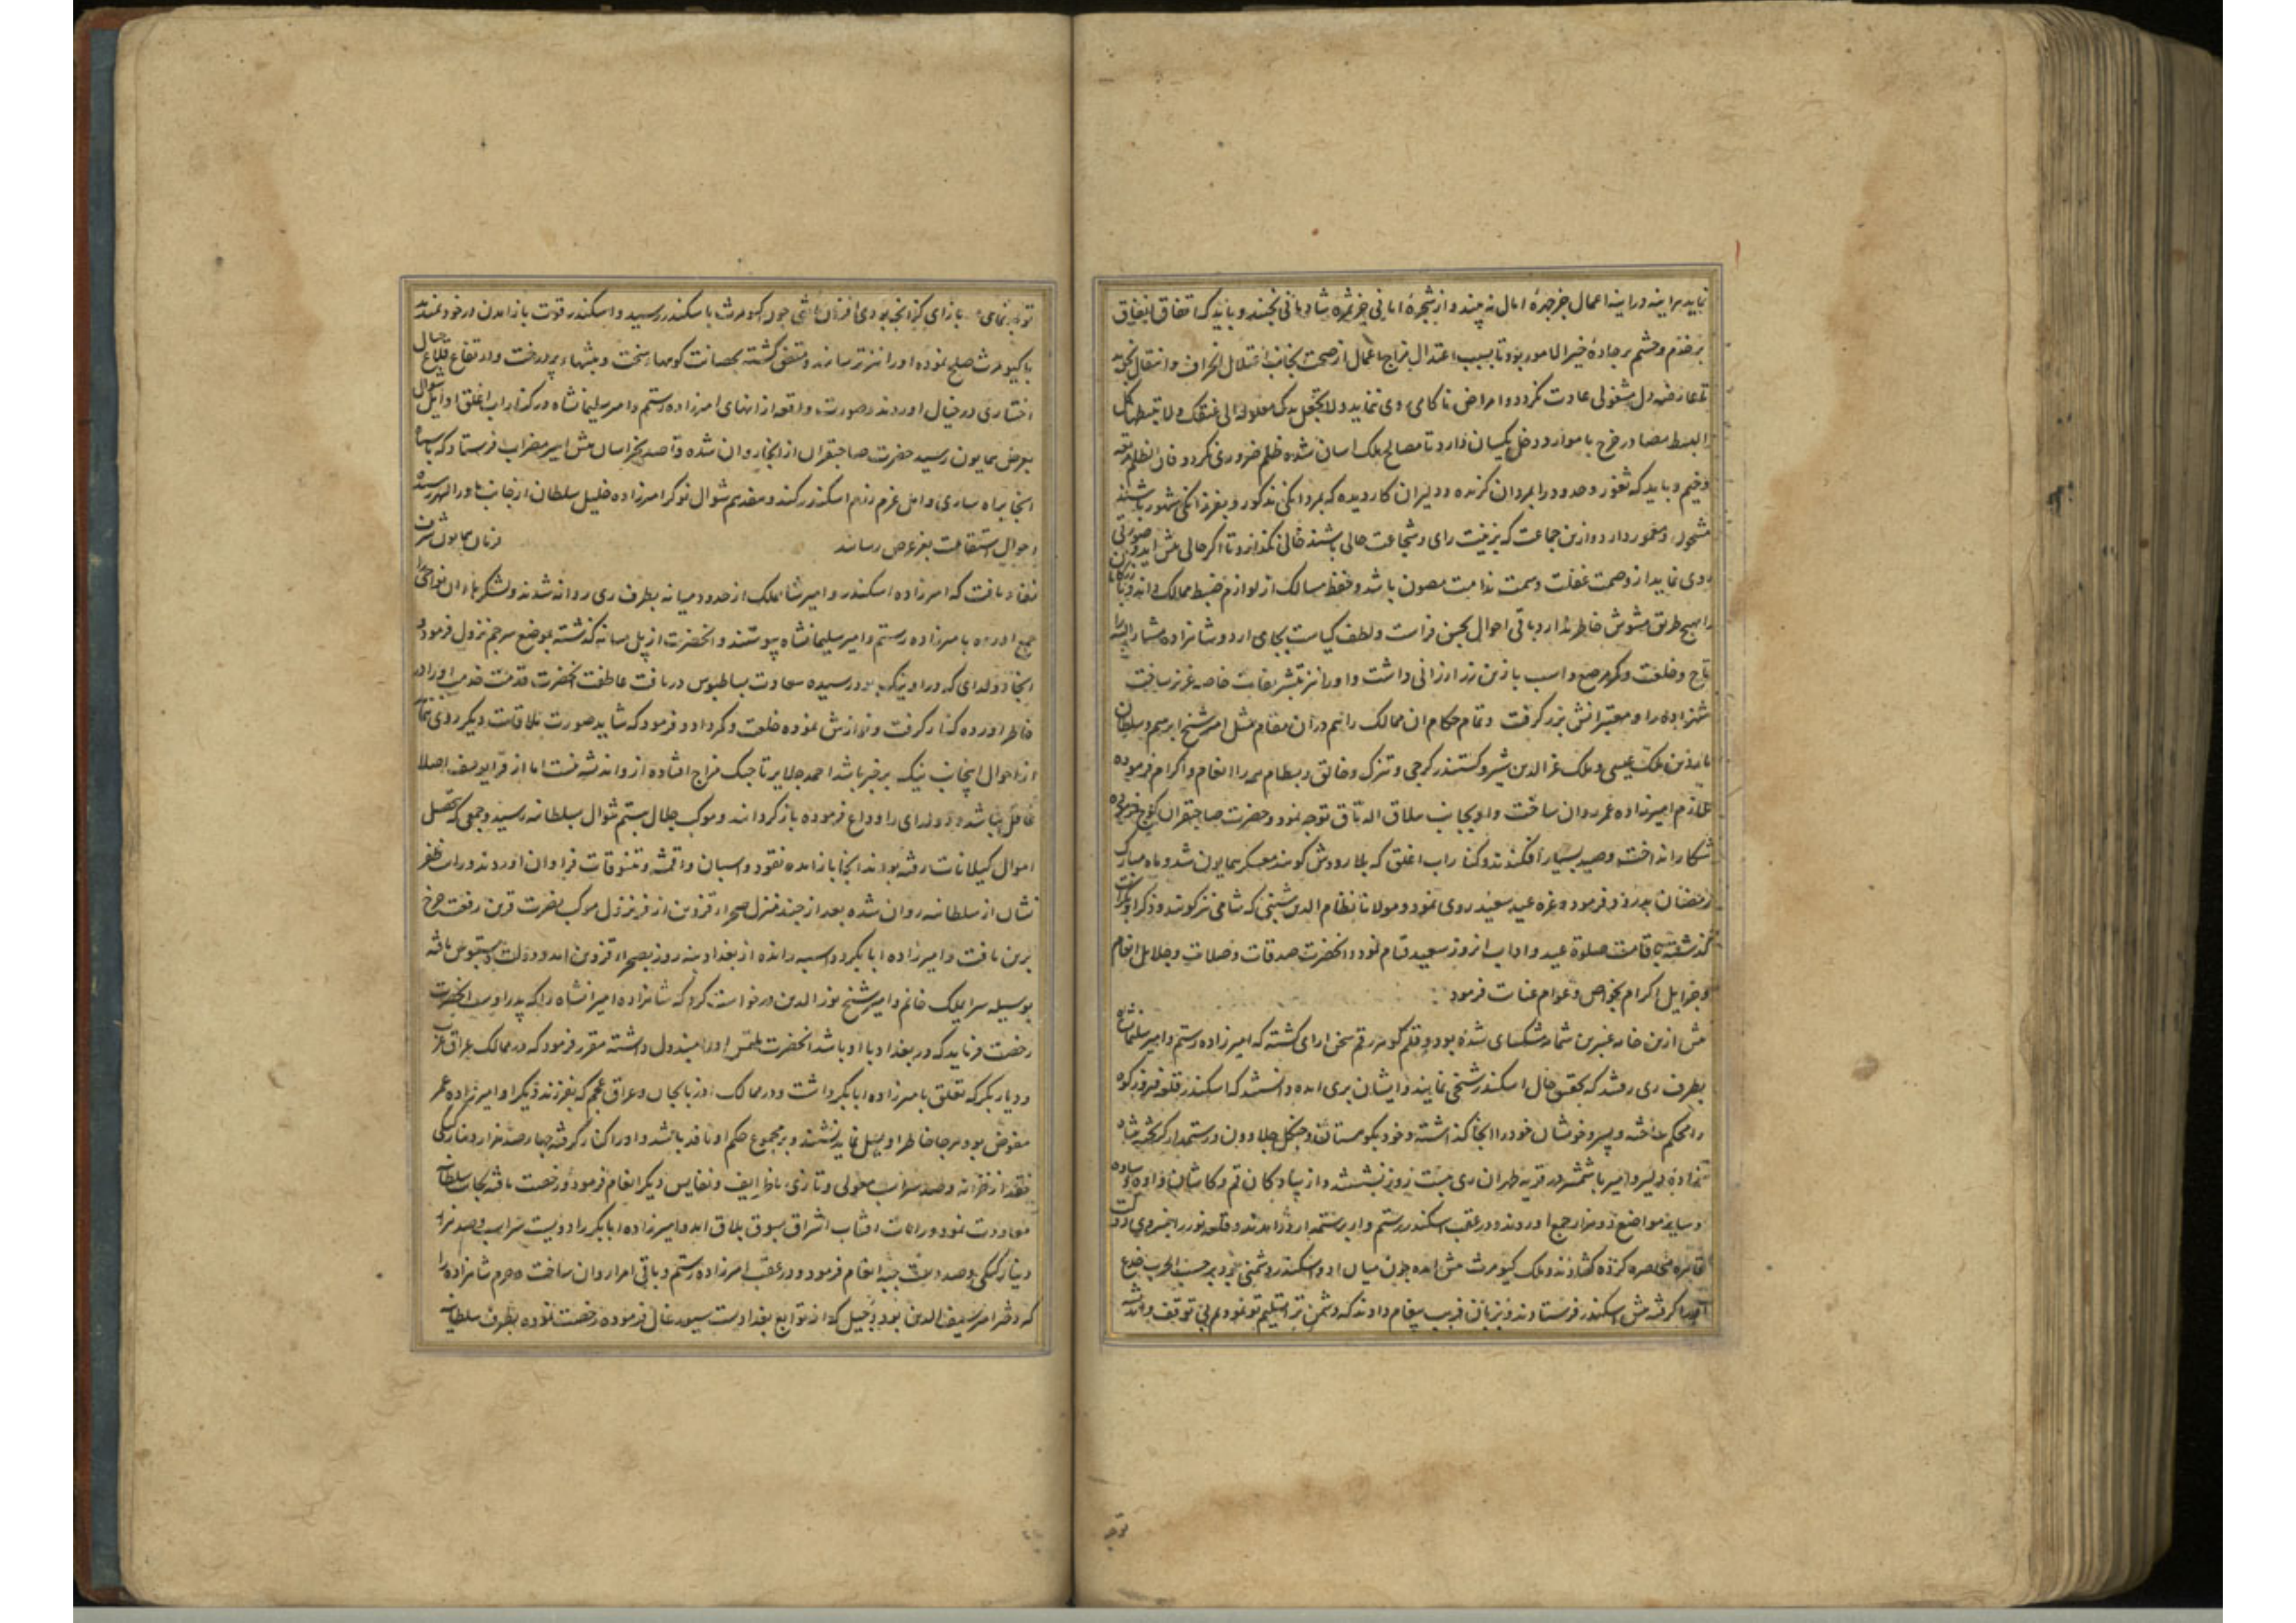 نماید هر اینه در اینه اعمال جز چهرۀ امال نه بیند و از شجرۀ امانی جز ثمرۀ شادمانی نچیند و باید که انفاق
بر قدم و چشم بر جادۀ خیر الامور بود تا بسبب اعتدال مزاج اعمال از صحت بجانب اعتلال انحراف و انتقال نجوید
دل مشغولی عادت نکردد و امراض ناکامی روی ننماید ولا تجعل یدک مغلولة الی عنقک ولا تبسطها کل
البسط مصادر خرج با موارد دخل یکسان دارد تا مصالح ملک اسان شده ظلم ضروری نکردد فان الظلم مرتعه
وخیم و باید که ثغور و حدود را بمردان کزیده و دلیران کاردیده که بمردانکی مذکور و بفرزانکی مشهور باشند
مشحون و معمور دارد و ازین جماعت که بزینت رای و شجاعت حالی باشند خالی نکذارد تا اکر حالی پیش اید و صورتی
روی نماید از وصمت غفلت و سمت ندامت مصون باشد و حفظ مسالک از لوازم ضبط ممالک داند
بهیچ طریق مشوش خاطر ندارد و باقی احوال بحسن فراست و لطف کیاست بجای ارد و شاهزاده مشار الیه را
تاج و خلعت و کمر مرصع و اسب با زین زر ارزانی داشت و او را نیز بتشریفات خاصه عزیز ساخت
شهزاده را و معتبرانش بزر کرفت و تمام حکام ان ممالک را هم در ان مقام مثل امیر شیخ ابراهیم و سلطان
ماردین ملک عیسی و ملک عز الدین شیر و کستندر کرجی و تیزک و جالق و بسطام همه را انعام و اکرام فرموده
ملازم امیرزاده عمر روان ساخت و او بجانب ییلاق اله تاق توجه نمود و حضرت صاحبقران کوچ فرموده
شکار انداخت و صید بسیار افکندند و کنار اب اغلق که بلا رودش کویند معسکر همایون شد و ماه مبارک
رمضان بدرود فرمود و غره عید سعید روی نمود و مولانا نظام الدین شنبی که شامی نیز کویند و ذکر او
کذشت باقامت صلوة عید و اداب انروز سعید قیام نمود و انحضرت صدقات و صلات و جلایل انعام
و جزایل اکرام بخواص و عوام عنایت فرمود
پیش ازین خامه عنبرین شمامه مشکسای شده بود و قلم کوهر رقم سخن ارای کشته که امیرزاده رستم و امیر سلیمانشاه
بطرف ری رفتند که تحقیق حال اسکندر شیخی نمایند و ایشان بری امده دانستند که اسکندر قلعه فیروزکوه
را محکم ساخته و پسر و خویشان خود را انجا کذاشته و خود بکوهستان و جنکل چلاو و رستمدار کریخته
شهزاده دلیر و امیر با شمشیر در قریه طهران ری بیست روز نشستند و از پیادکان قم و کاشان و ساوه
و سایر مواضع دو هزار جمع اوردند و در عقب اسکندر رستم وار برستمدار در امدند و قلعه نور را بنیروی دولت
قاهره محاصره کرده کشادند و ملک کیومرث پیش امده چون میان او و اسکندر دشمنی بود بر حسب الحرب خدعة
او را کرفته پیش اسکندر فرستادند و بزبان فریب پیغام دادند که دشمن ترا تسلیم تو نمودیم بی توقف و اندیشه
توجه
توجه نمای بازای کز انچه بودی افزون باشی چون کیومرث باسکندر رسید و اسکندر قوت باز امدن در خود ندید
با کیومرث صلح نموده او را نیز ترسانید و متفق کشته بحصانت کوهها سخت و بیشها پردرخت و ارتفاع قلاع جبال
اختیاری در خیال اوردند و صورت واقعه از انهای امیرزاده رستم و امیر سلیمانشاه در کنار اب اغلق اوایل شوال
بعرض همایون رسید حضرت صاحبقران از انجا روان شده قاصد بخراسان پیش امیر مضراب فرستاد که با سپاه
انجا براه ساری و امل عزم رزم اسکندر کند و هفدهم شوال نوکر امیرزاده خلیل سلطان از جانب ماورا النهر رسیده
احوال استقامت بعز عرض رسانید فرمان همایون شرف
نفاذ یافت که امیرزاده اسکندر و امیر شاهملک از حدود میانه بطرف ری روانه شدند و لشکرها ان نواحی را
جمع اورده با میرزاده رستم و امیر سلیمانشاه پیوستند و انحضرت از پل میانه کذشته بموضع سرجم نزول فرمود
انجا دولدای که در اونیک بود رسیده سعادت بساطبوس دریافت عاطفت انحضرت قدمت خدمت او را در
خاطر اورده کنار کرفت و نوازش نموده خلعت و کمر داد و فرمود که شاید صورت ملاقات دیکر روی ننماید
از احوال اینجانب نیک بر خبر باشد احمد جلایر تاجیک مزاج افتاده از و اندیشه نیست اما از قرا یوسف اصلا
غافل نباشد و دولدای را وداع فرموده باز کردانید و موکب جلال بیستم شوال بسلطانیه رسید و جمعی که بتحصیل
اموال کیلانات رفته بودند انجا باز امده نقود و اسبان و اقمشه و تنسوقات فراوان اوردند و رایت ظفر
نشان از سلطانیه روان شده بعد از چند منزل صحراء قزوین از فر نزول موکب نصرت قرین رفعت چرخ
برین یافت و امیرزاده ابابکر دو اسبه رانده از بغداد بنه روز بصحراء قزوین امد و دولت دستبوس یافته
بوسیله سرایملک خانم و امیر شیخ نور الدین درخواست کرد که شاهزاده امیرانشاه را که پدر اوست انحضرت
رخصت فرماید که در بغداد با او باشد انحضرت ملتمس او را مبذول داشته مقرر فرمود که در ممالک عراق عرب
و دیار بکر که تعلق بامیرزاده ابابکر داشت و در ممالک اذربایجان و عراق عجم که بفرزند دیکر او امیرزاده عمر
مفوض بود هر جا خاطر او میل نماید نشیند و بر مجموع حکم او نافذ باشد و او را کنار کرفته چهار صد هزار دینار کبکی
نقد از خزانه و صد سر اسب مغولی و تازی با ظرایف و نفایس دیکر انعام فرمود و رخصت یافته بجانب سلطانیه
معاودت نمود و رایات افتاب اشراق بسوق بلاق امد و امیرزاده ابابکر را دویست سر اسب و صد هزار
دینار کبکی و صد و بیست جیبه انعام فرمود و در عقب امیرزاده رستم و باقی امرا روان ساخت و حرم شاهزاده را
که دختر امیر سیف الدین بود دجیل که از توابع بغداد است سیورغال فرموده رخصت نموده بطرف سلطانیه